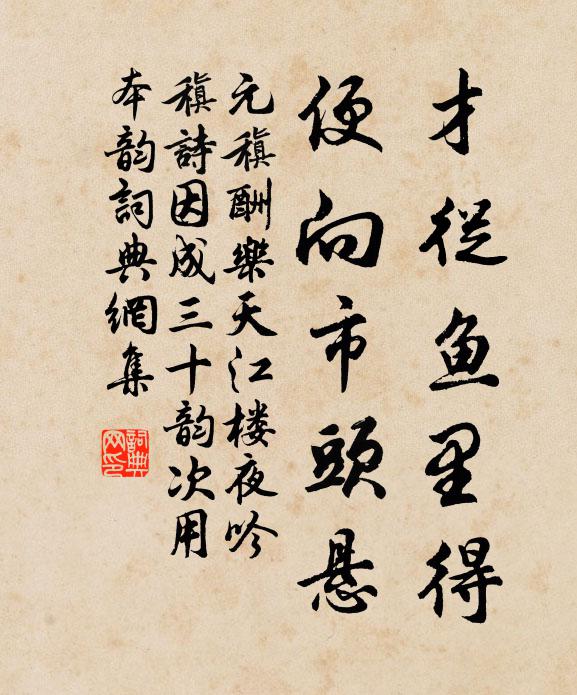 才從鱼里得
便向市頭懸
元稹酬樂天江楼夜吟
稹詩因成三十韵次用
本韵詞典網集
詞典网印